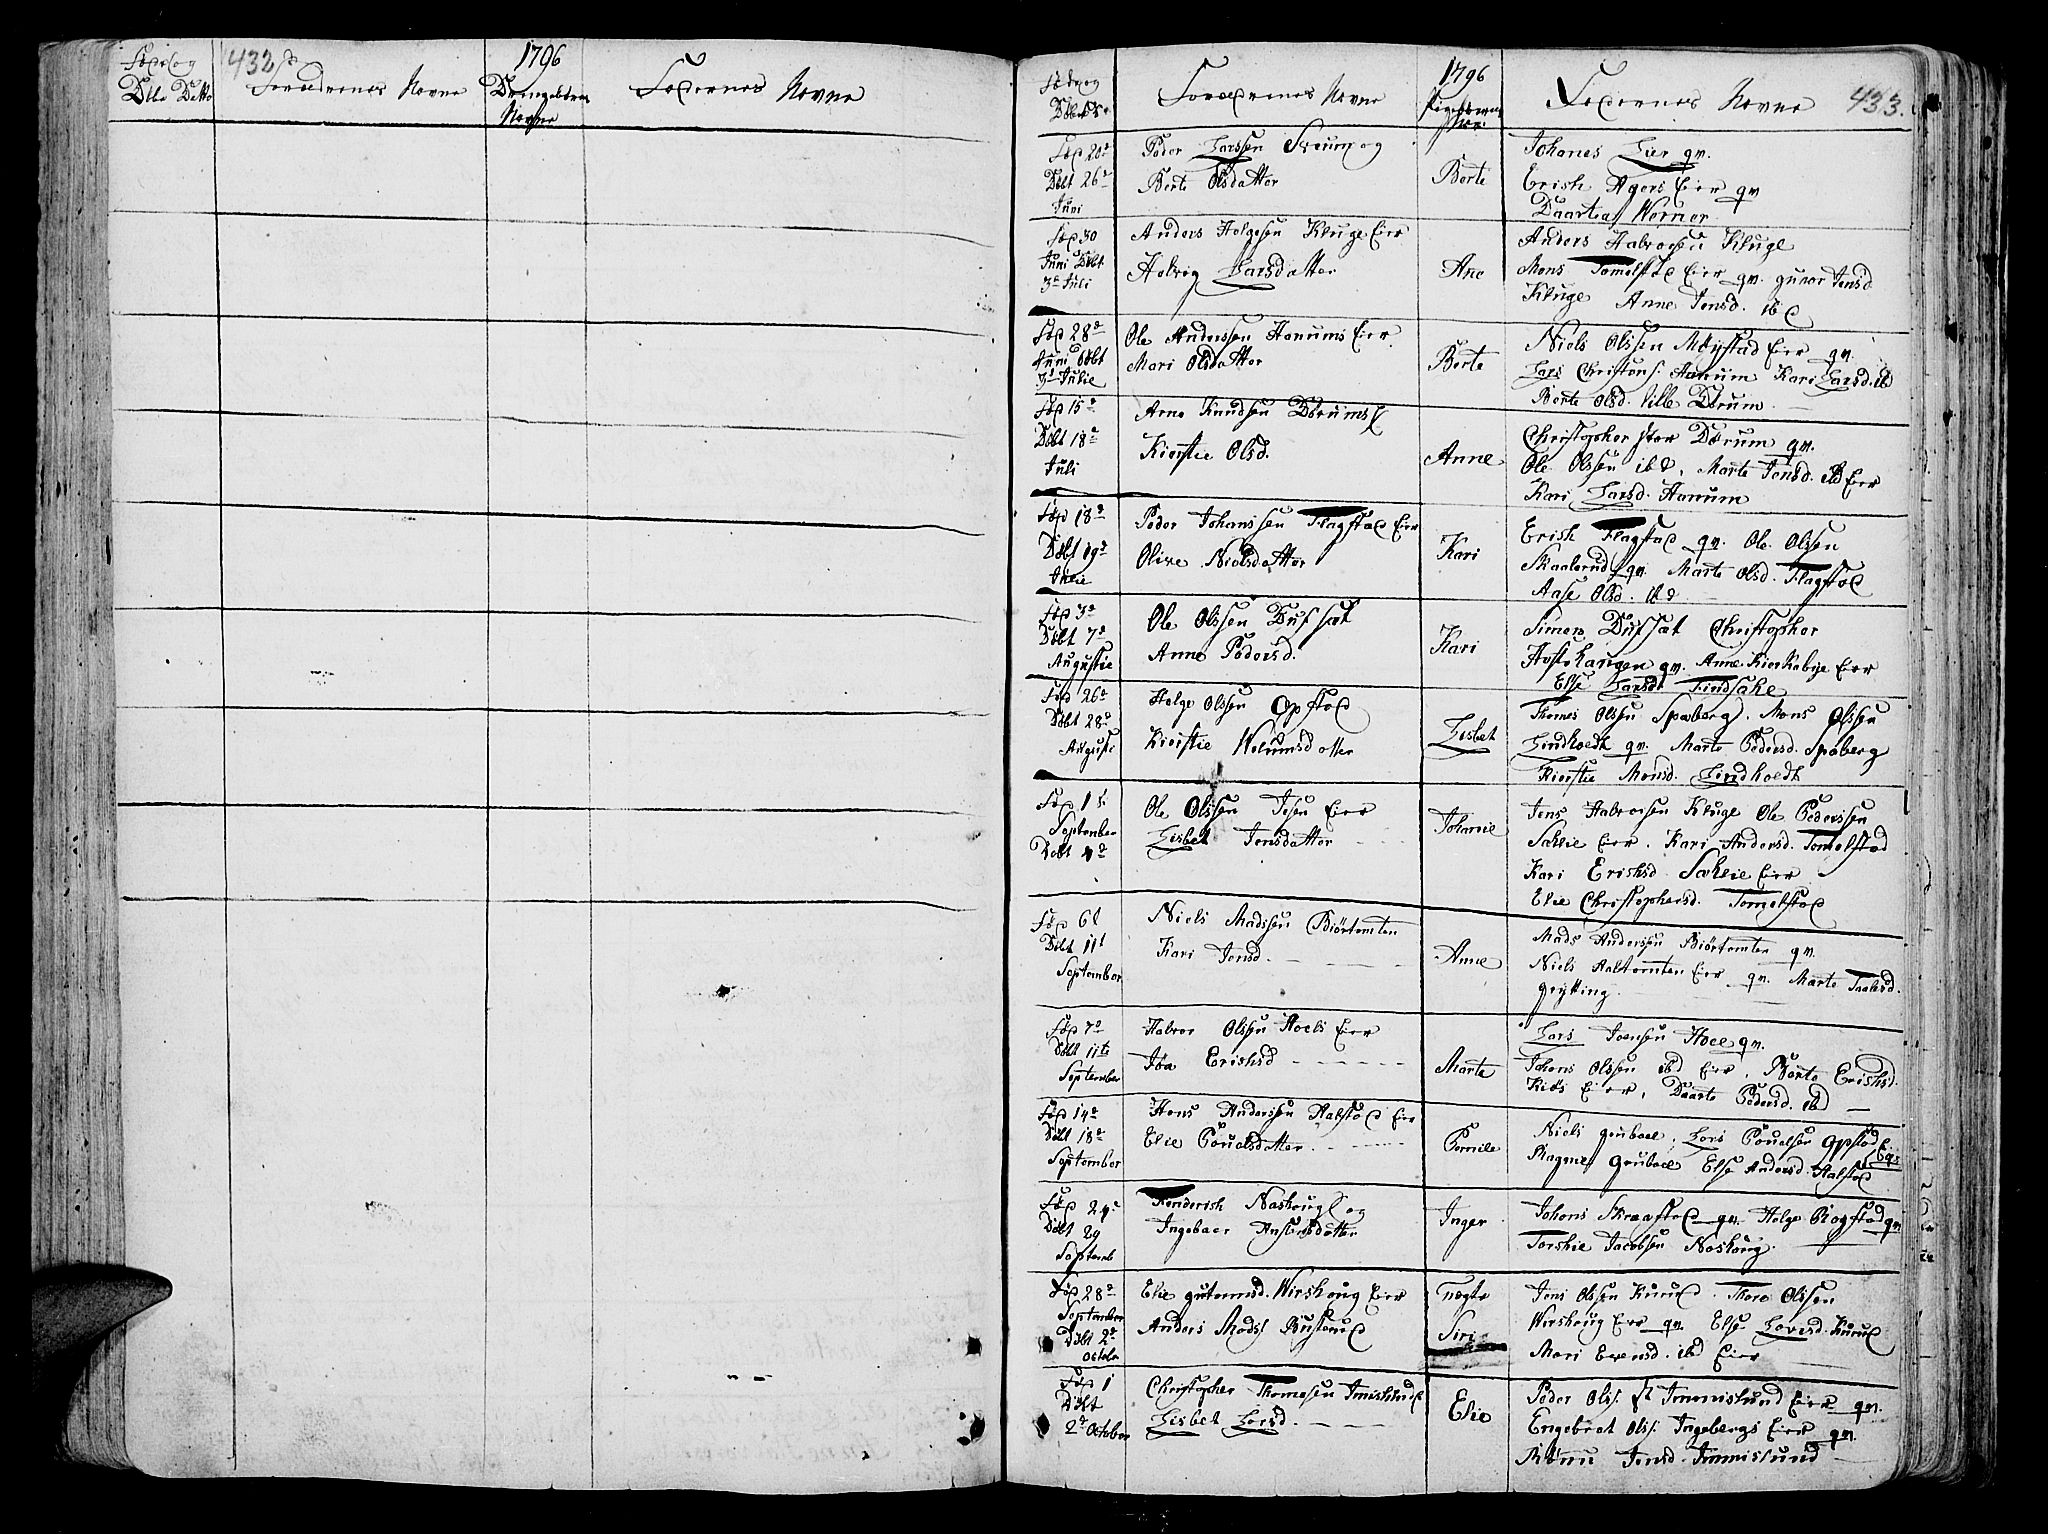 432
1796
Født og
Døbe Datto
Forældrenes Navne
Drengebørn
Navne
Faddernes Navne
Født og
Forældrenes Navne
1796
Pigebørnenes
Faddernes Navne
433.
Fød 20de
Døbt 26de
Juni
Peder Larssen Sveum og
Berte Olsdatter
Berte
Johanes Lier qv.
Erich Agers Eier qv
Daartea Werner
Fød 30
Juni Døbt
3de Juli
Anders Helgesen Kluge Eier
Helvig Larsdatter
Ane
Anders Halvorsen Kluge
Mons Tomelstad Eier qv. gunor Jensd
Kluge Anne Jensd. ibd
Fød 28de
Juni Døbt
3de Julie
Ole Anderssen Hanums Eier
Mari Olsdatter
Berte
Niels Olssen Møystad Eier qv.
Lars Christens. Hanum Kari Larsd. ibd
Berte Olsd. lille Dørum
Fød 15de
Døbt 18de
Juli
Arne Knudsen Dørums
Kierstie Olsd.
Anne
Christopher stor Dørum qv.
Ole Olssen ibd, Marte Jensd. ibd Eier
Kari Larsd. Hanum
Fød 18de
Døbt 19de
Julie
Peder Johanssen Flagstad Eier
Olive Nielsdatter
Kari
Erich Flagstad qv. Ole Olssen
Skaalerud qv. Marte Olsd. Flagstad
Aase Olsd. ibd
Fød 3de
Døbt 7de
Augustie
Ole Olssen Dufsæt
Anne Pedersd.
Kari
Simen Dufsæt Christopher
Hofshaugen qv. Anne Kierkebye Eier
Else Larsd. Findsahe
Fød 26de
Døbt 28de
Auguste
Helge Olssen Opstad
Kierstie Webiumsdatter
Lisbet
Thomes Olssen Spaberg. Mons Olssen
Lindholdt qv. Marte Pedersd. Spaberg
Kierstie Monsd. Lindholdt
Fød 1
September
Døbt 4de
Ole Olssen Jesen Eier
Lisbet Jensdatter
Johanne
Jens Halvorsen Kluge Ole Pederssen
Sælie Eier. Kari Andersd. Tomelstad
Kari Erichsd. Sælie Eier
Elie Christophersd. Tomelstad
Fød 6t
Døbt 11t
September
Niels Madssen Biørtomten
Kari Jensd.
Anne
Mads Anderssen Biørtomten qv.
Niels Haltomten Eier qv. Marte Paalsd.
grøtting.
Fød 7de
Døbt 11te
September
Halvor Olssen Hoels Eier
Joa Erichsd
Marte
Lars Joensen Hoel qv.
Johans Olssen ibd Eier, Marte Erichsd.
Kids Eier, Daarte Pedersd. ibd
Fød 14de
Døbt 18de
September
Hans Anderssen Halstad Eier
Elie Pouelsdatter
Pernile
Niels grubael, Lars Pouelsen Opstad Eqv
Ragnel grubael Else Andersd. Halstad
Fød 24de
Døbt 29
Septemb
Fenderich Naskoug og
Ingebaer Anstensdatter
Inger
Johans Skræstad qv. Helge Rogstad qv.
Torshie Jacobsen Naskoug.
Fød 28de
September
Døbt 2de
Octobr
Elie gutormsd. Wirshoug Eier
Anders Mads. Bustrud
uægte
Siri
Jens Olssen Kurud Thore Olssen
Wirshoug Eier qv. Else Larsd. Kurud
Mari Evensd. ibd Eier
Fød 1
Døbt
2de October
Christopher Thomesen Imislund
Lisbet Larsd.
Elie
Peder Ols. Immislund Eier qv.
Engebret Ols. Ingebergs Eier qv.
Rønu Jensd. Immislund